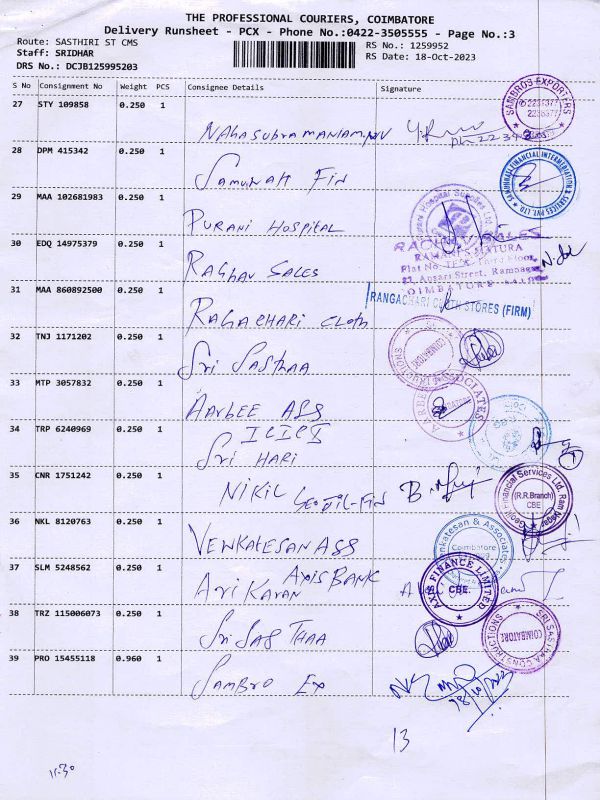 THE PROFESSIONAL COURIERS, COIMBATORE
Delivery Runsheet - PCX - Phone No.:0422-3505555 - Page No.:3
Route: SASTHIRI ST CMS
Staff: SRIDHAR
DRS No.: DCJB125995203
RS No.: 1259952
RS Date: 18-Oct-2023
S No Consignment No Weight PCS Consignee Details Signature
27 STY 109858 0.250 1
SAMBROS EXPORTERS
28 DPM 415342 0.250 1
Samunnati Fin
29 MAA 102681983 0.250 1
Purani Hospital
30 EDQ 14975379 0.250 1
Raghav Sales
RAGHAV SALES
Flat No.
Ansari Street, Ramnagar
COIMBATORE
31 MAA 860892500 0.250 1
Ragachari Cloth
RANGACHARI CLOTH STORES (FIRM)
32 TNJ 1171202 0.250 1
Sri Sasthaa
33 MTP 3057832 0.250 1
Aarbee Ass
34 TRP 6240969 0.250 1
ICICI
Sri Hari
35 CNR 1751242 0.250 1
Nikil Geojit-Fin
Geojit Financial Services Ltd, Ram Nagar
(R.R.Branch)
CBE
36 NKL 8120763 0.250 1
Venkatesan Ass
Venkatesan & Associates
Coimbatore
37 SLM 5248562 0.250 1
Axis Bank
AXIS FINANCE LIMITED
CBE.
38 TRZ 115006073 0.250 1
Sri Sasthaa
SRI SASTHAA CONSTRUCTIONS
COIMBATORE
39 PRO 15455118 0.960 1
Sambro Ex
13